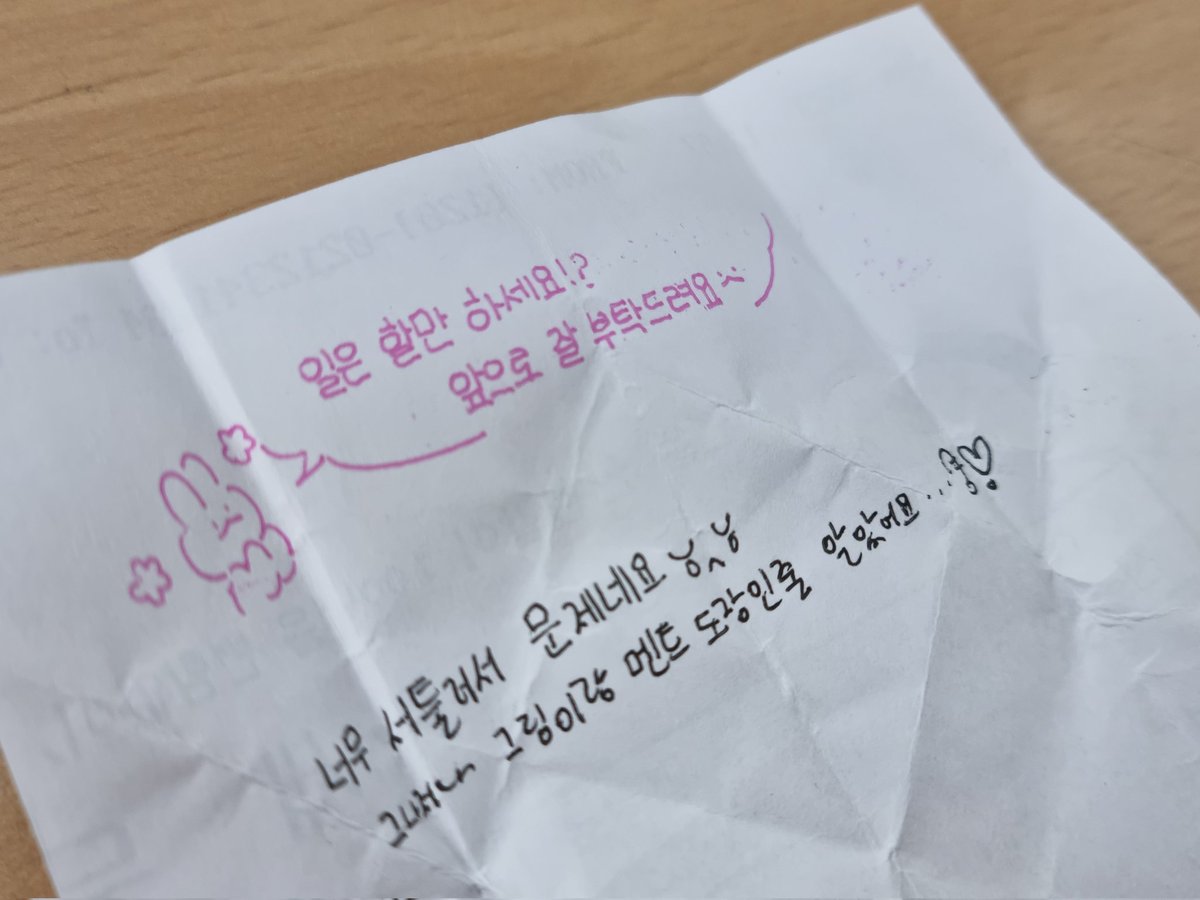 일은 할만 하세요!?
앞으로 잘 부탁드려요^^
너무 서툴러서 문제네요 ㅠㅠ
그나저나 그림이랑 멘트 도장인줄 알았어요...♡